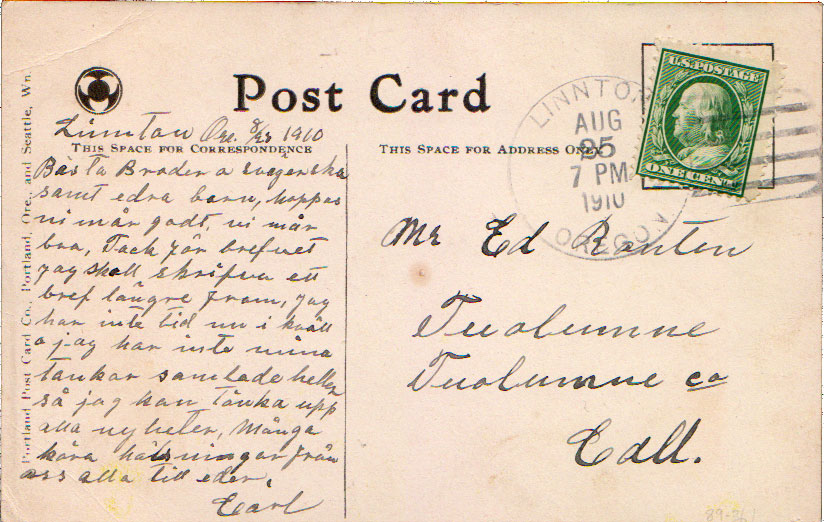 Post Card
Linnton Ore. 8/25 1910
THIS SPACE FOR CORRESPONDENCE
Bästa Broder o svägerska
samt edra barn, hoppas
ni mår godt, vi mår
bra, Tack för brefvet
jag skall skrifva ett
bref längre fram, jag
har inte tid nu i kväll
o jag har inte mina
tankar samlade heller
så jag kan tänka upp
alla nyheter, Många
kära hälsningar från
oss alla till eder.
Carl
THIS SPACE FOR ADDRESS ONLY
Mr Ed Ranten
Tuolumne
Tuolumne co
Call.
U.S. POSTAGE
ONE CENT
LINNTON
AUG
25
7 PM
1910
OREGON
Portland Post Card Co., Portland, Ore., and Seattle, Wn.